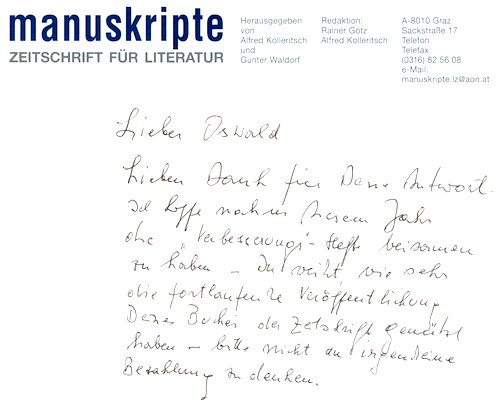 manuskripte
ZEITSCHRIFT FÜR LITERATUR
Herausgegeben
von
Alfred Kolleritsch
und
Günter Waldorf
Redaktion:
Rainer Götz
Alfred Kolleritsch
A-8010 Graz
Sackstraße 17
Telefon
Telefax
(0316) 82 56 08
e-Mail:
manuskripte.lz@aon.at
Lieber Oswald
Lieben Dank für Deine Antwort.
Ich hoffe noch in diesem Jahr
die „Verbesserungs"-Hefte beisammen
zu haben – Du weißt, wie sehr
die fortlaufende Veröffentlichung
Deines Buches der Zeitschrift genützt
haben – bitte nicht an irgendeine
Bezahlung zu denken.